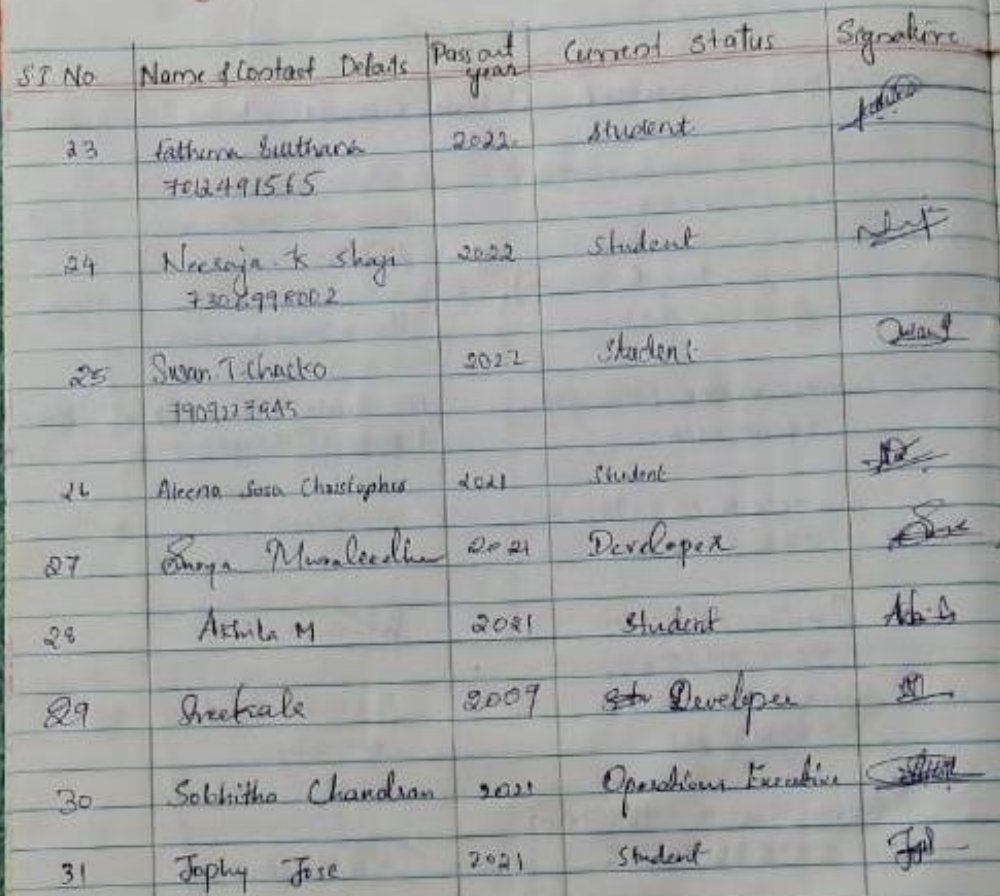 SI No Name & Contact Details Pass out year Current Status Signature
23 Fathima 2022 Student
7012491565
24 Neeraja K Shaji 2022 Student
25 Susan T Chacko 2022 Student
7909227945
26 Aleena Sosa Christopher 2021 Student
27 Muraleedhar 2021 Developer
28 Akhila M 2021 Student
29 Sreekala 2009 Developer
30 Sobhitha Chandran 2021 Operations Executive
31 Jophy Jose 2021 Student